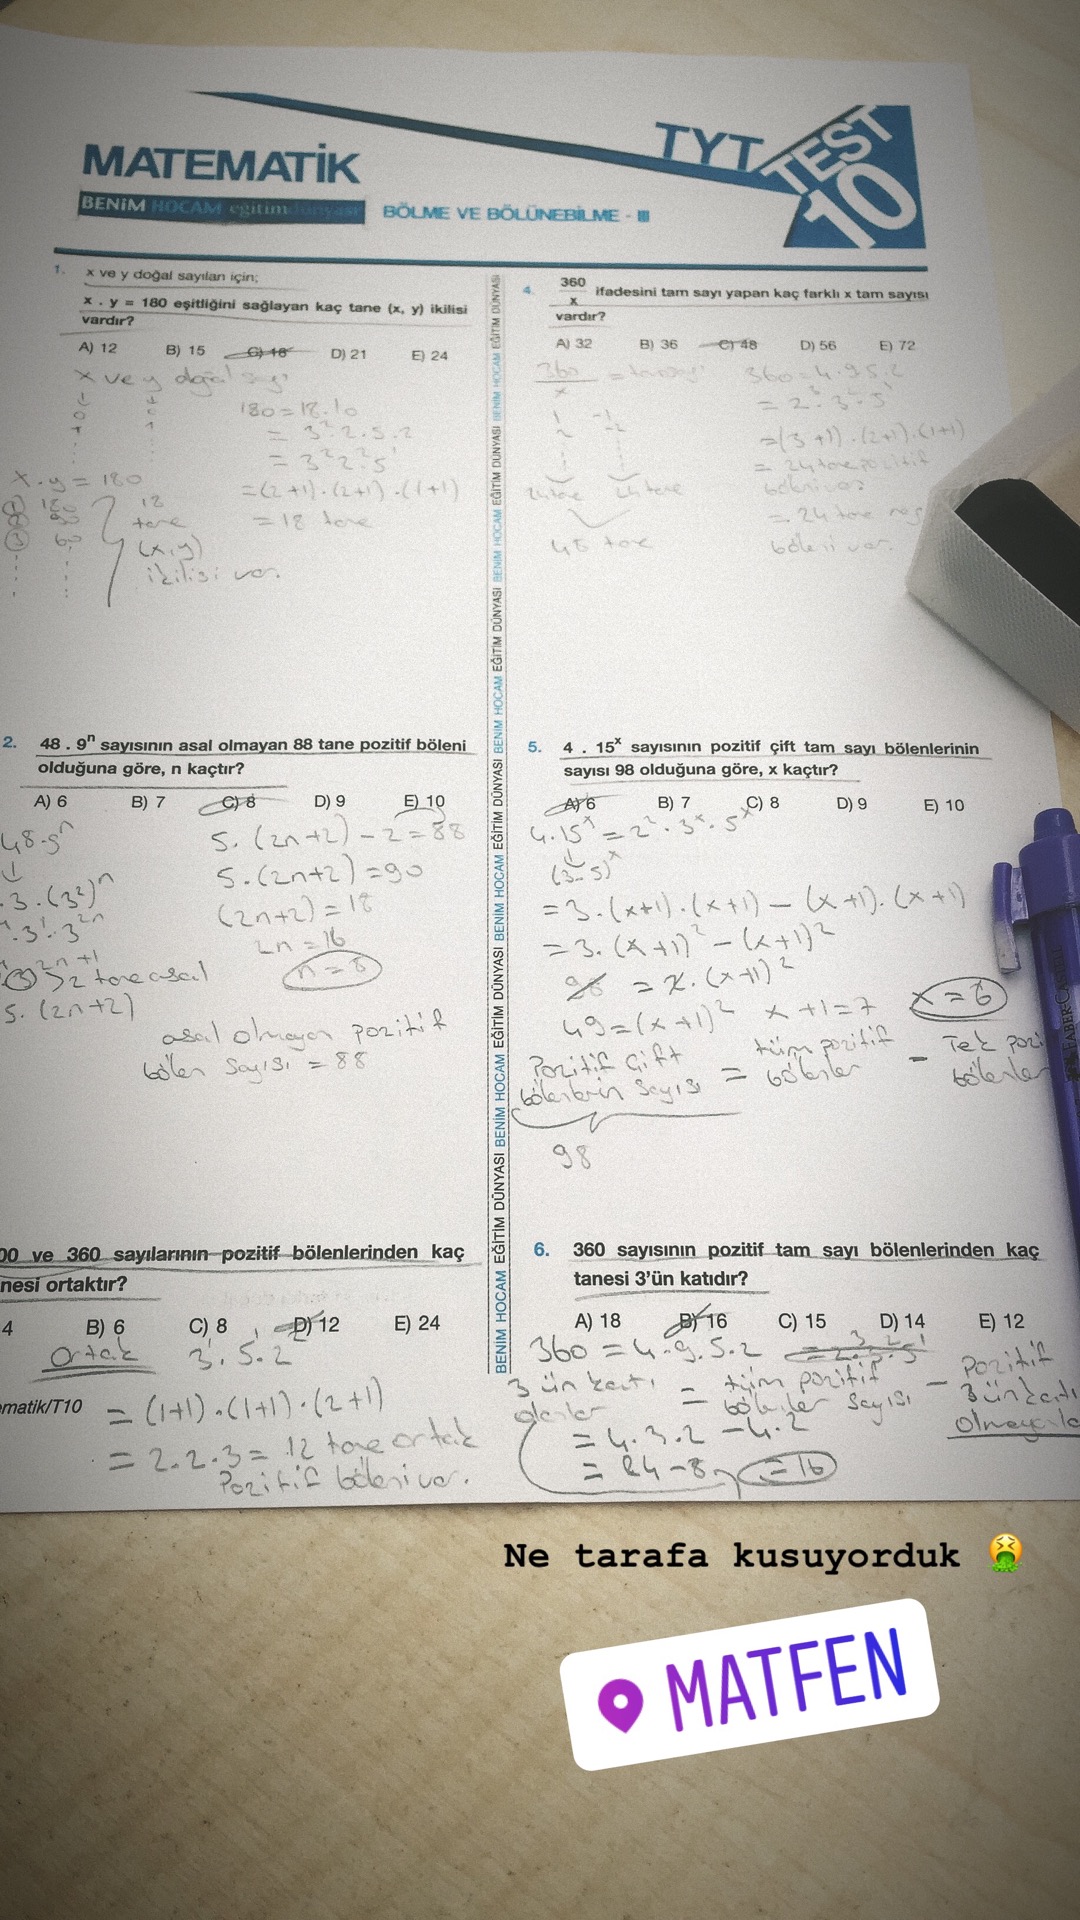 MATEMATİK
BENİM HOCAM eğitim dünyası
BÖLME VE BÖLÜNEBİLME - III
TYT
TEST
10
1. x ve y doğal sayıları için;
x . y = 180 eşitliğini sağlayan kaç tane (x, y) ikilisi
vardır?
A) 12 B) 15 C) 18 D) 21 E) 24
x ve y doğal sayı
180 = 18.10
= 3².2.5.2
= 3²2².5¹
x.y = 180
= (2+1).(2+1).(1+1)
= 18 tane
18
tane
(x,y)
ikilisi var.
2. 48 . 9ⁿ sayısının asal olmayan 88 tane pozitif böleni
olduğuna göre, n kaçtır?
A) 6 B) 7 C) 8 D) 9 E) 10
48.9ⁿ
.3.(3²)ⁿ
.3¹.3²ⁿ
2 tane asal
5.(2n+2)
5.(2n+2) - 2 = 88
5.(2n+2) = 90
(2n+2) = 18
2n = 16
n = 8
asal olmayan pozitif
bölen sayısı = 88
00 ve 360 sayılarının pozitif bölenlerinden kaç
nesi ortaktır?
4 B) 6 C) 8 D) 12 E) 24
Ortak 3¹.5¹.2²
= (1+1).(1+1).(2+1)
= 2.2.3 = 12 tane ortak
Pozitif böleni var.
ematik/T10
BENİM HOCAM EĞİTİM DÜNYASI BENİM HOCAM EĞİTİM DÜNYASI BENİM HOCAM EĞİTİM DÜNYASI BENİM HOCAM EĞİTİM DÜNYASI BENİM HOCAM EĞİTİM DÜNYASI BENİM HOCAM EĞİTİM DÜNYASI
4. 360/x ifadesini tam sayı yapan kaç farklı x tam sayısı
vardır?
A) 32 B) 36 C) 48 D) 56 E) 72
360/x = tamsayı
1 -1
2 -2
24 tane 24 tane
48 tane
360 = 4.9.5.2
= 2³.3².5¹
= (3+1).(2+1).(1+1)
= 24 tane pozitif
böleni var
= 24 tane neg
böleni var.
5. 4 . 15ˣ sayısının pozitif çift tam sayı bölenlerinin
sayısı 98 olduğuna göre, x kaçtır?
A) 6 B) 7 C) 8 D) 9 E) 10
4.15ˣ = 2².3ˣ.5ˣ
(3.5)ˣ
= 3.(x+1).(x+1) - (x+1).(x+1)
= 3.(x+1)² - (x+1)²
98 = 2.(x+1)²
49 = (x+1)² x+1 = 7 x = 6
Pozitif Çift bölenlerin sayısı = tüm pozitif bölenler - Tek pozi bölenler
98
FABER-CASTELL
6. 360 sayısının pozitif tam sayı bölenlerinden kaç
tanesi 3'ün katıdır?
A) 18 B) 16 C) 15 D) 14 E) 12
360 = 4.9.5.2 = 2³.3².5¹
3 ün katı olanlar = tüm pozitif bölenler sayısı - Pozitif 3 ün katı olmayanla
= 4.3.2 - 4.2
= 24 - 8 = 16
Ne tarafa kusuyorduk 🤮
MATFEN